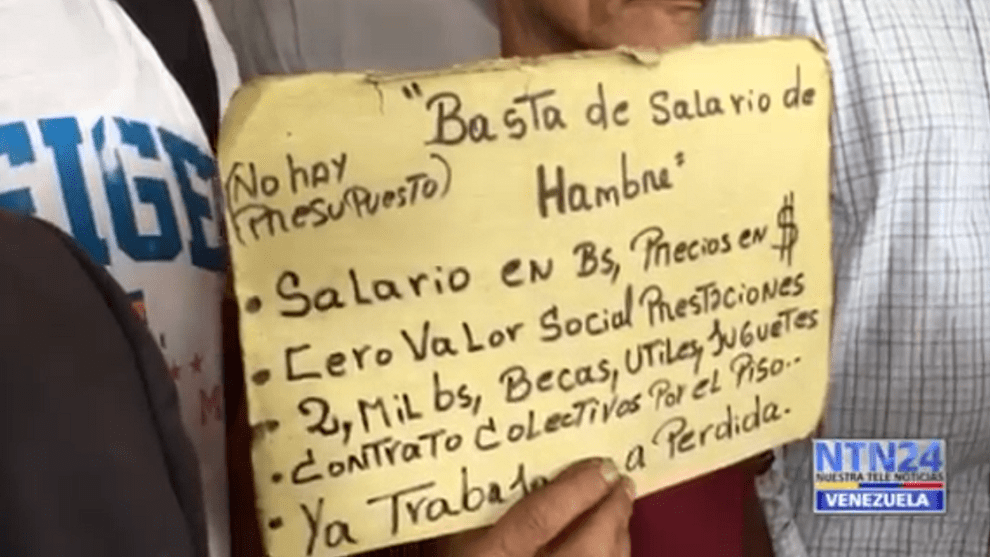 "Basta de Salario de
Hambre"
(No hay
Presupuesto)
• Salario en Bs, Precios en $
• Cero Valor Social Prestaciones
• 2, Mil bs, Becas, Utiles, Juguetes
• Contrato Colectivos Por el Piso..
• Ya a Perdida.
FIGE
NTN24
NUESTRA TELE NOTICIAS
VENEZUELA